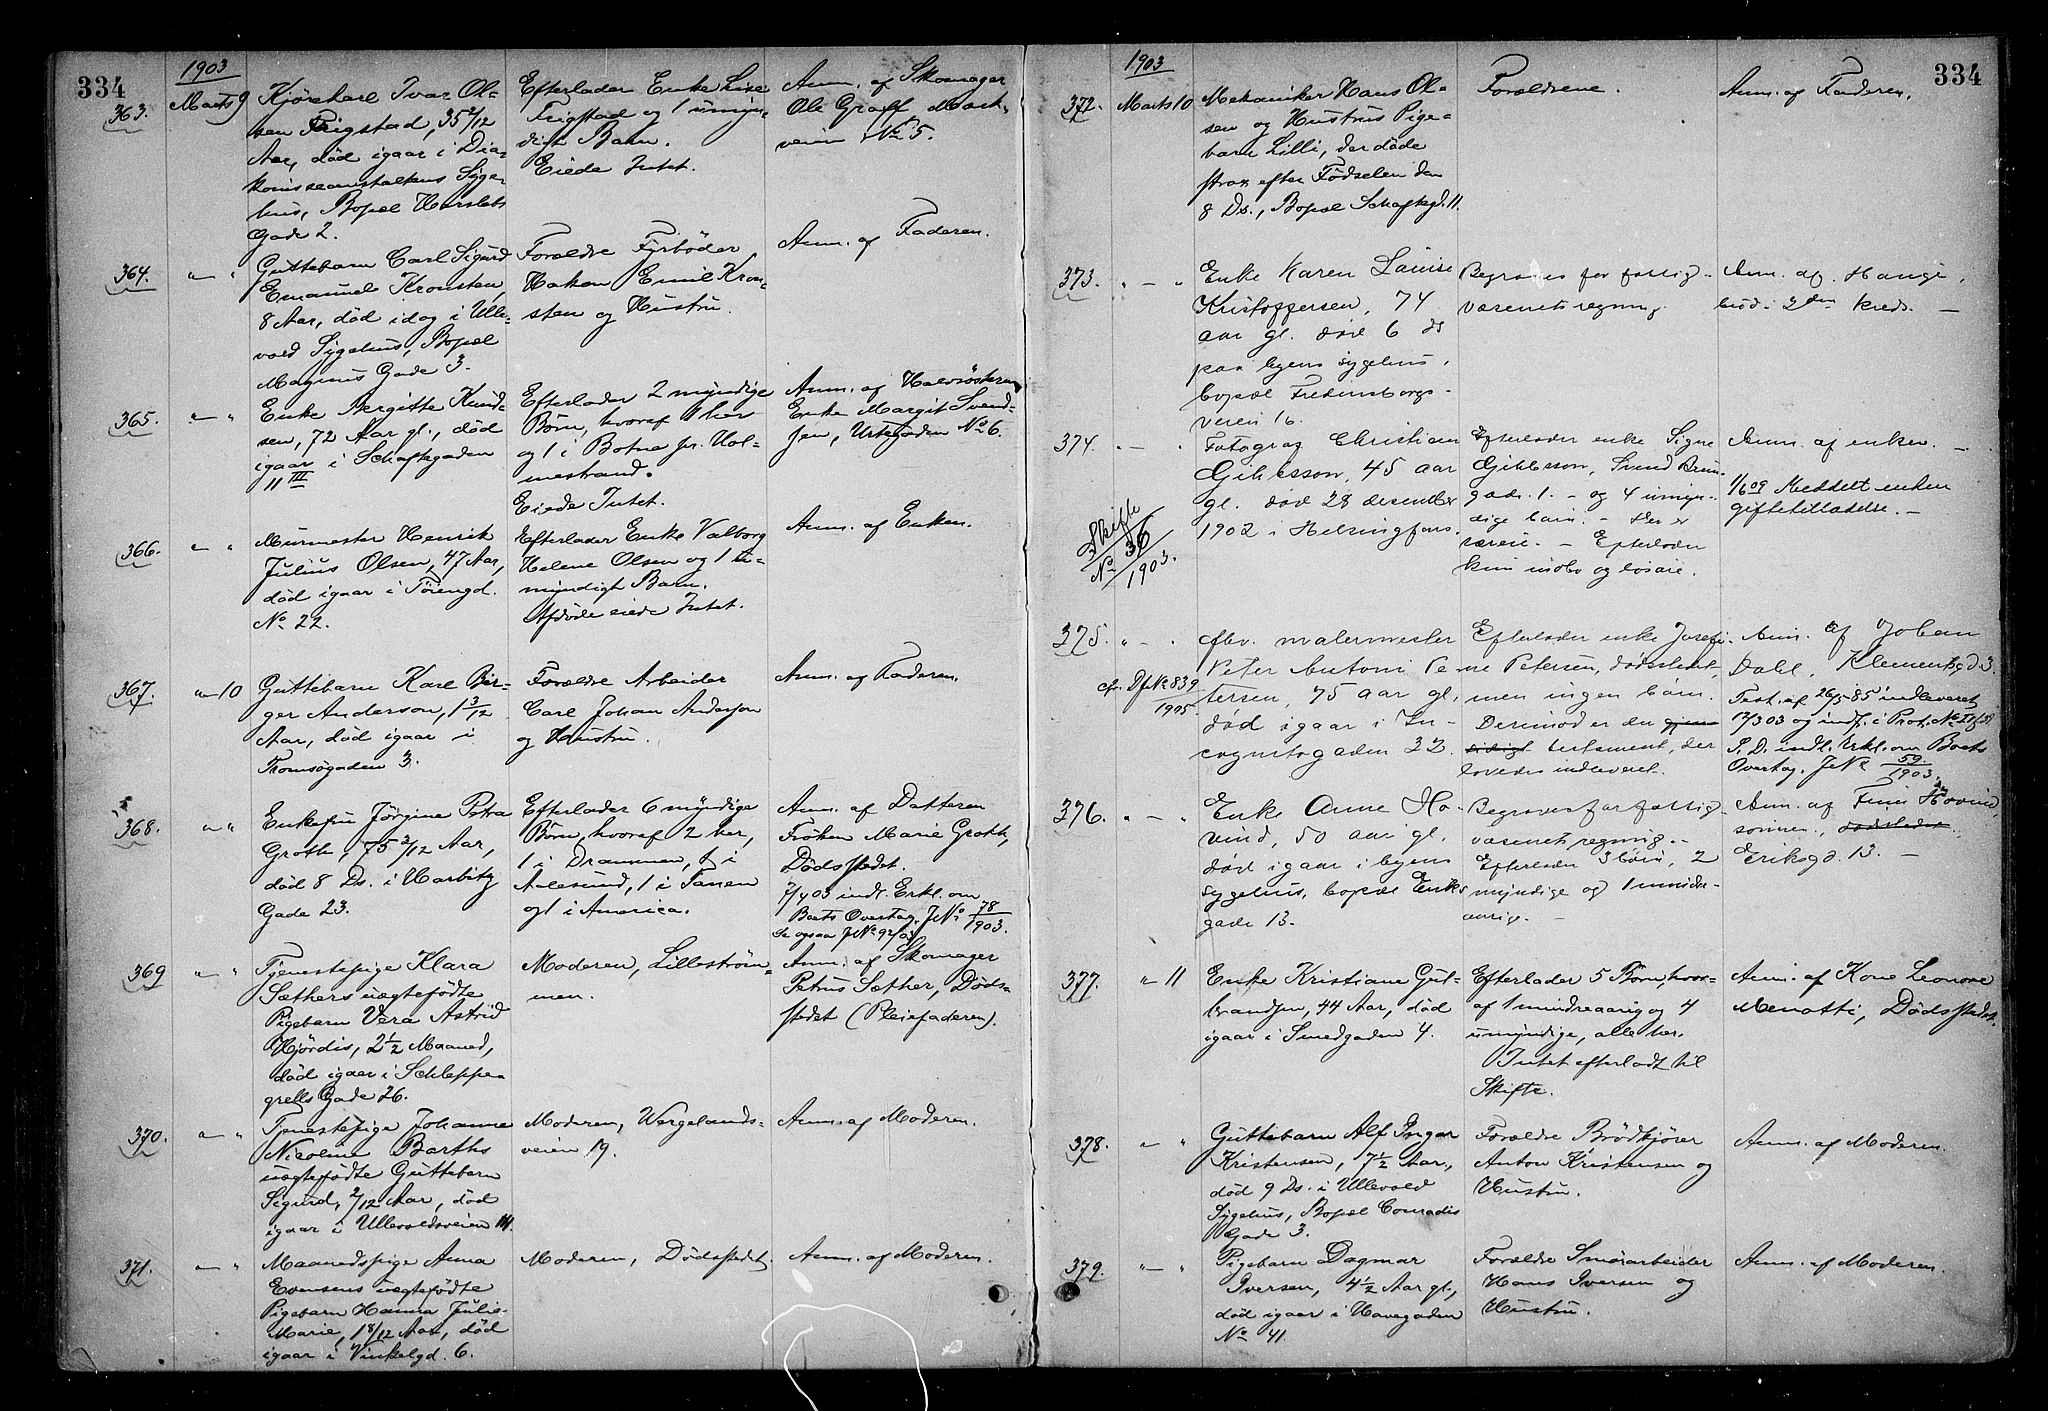 334
1903
363. Marts 9
Kjørekarl Ivar Ol-
sen Frigstad, 35 2/12
Aar, død igaar i Dia-
konisseanstaltens Syge-
hus, Bopæl Herslebs
Gade 2.
Efterlader Enke Lise
Frigstad og 1 umyn-
digt Barn.
Eiede Intet.
Anm. af Skomager
Ole Graff Mark-
veien No 5.
364. " "
Guttebarn Carl Sigurd
Emanuel Kronsten,
8 Aar, død idag i Ulle-
vold Sygehus, Bopæl
Magnus Gade 3.
Forældre Fyrbøder
Hakon Emil Kron-
sten og Hustru.
Anm. af Faderen.
365. " "
Enke Bergitte Knud-
sen, 72 Aar gl., død
igaar i Schaftegaden
11 III
Efterlader 2 myndige
Børn, hvoraf 1 her
og 1 i Botne pr. Hol-
mestrand.
Eiede Intet.
Anm. af Halvsøsteren
Enke Margit Svend-
sen, Urtegaden No 6.
366. " "
Murmester Henrik
Julius Olsen, 47 Aar,
død igaar i Tøiengd.
No 22.
Efterlader Enke Valborg
Helene Olsen og 1 u-
myndigt Barn.
Afdøde eiede Intet.
Anm. af Enken.
367. " 10
Guttebarn Karl Bir-
ger Anderson, 1 3/12
Aar, død igaar i
Tromsøgaden 3.
Forældre Arbeider
Carl Johan Anderson
og Hustru.
Anm. af Faderen.
368. " "
Enkefru Jørgine Petra
Groth, 75 2/12 Aar,
død 8 Ds. i Harbitz
Gade 23.
Efterlader 6 myndige
Børn, hvoraf 2 her,
1 i Drammen, 1 i
Aalesund, 1 i Tanen
og 1 i America.
Anm. af Datteren
Frøken Marie Groth,
Dødsstedet.
7/4 03 indl. Erkl. om
Boets Overtag. JNo 78/1903.
Se ogsaa JNo 92/03
369 " "
Tjenestepige Klara
Sæthers uægtefødte
Pigebarn Vera Astrid
Hjørdis, 2 1/2 Maaned,
død igaar i Schleppe-
grells Gade 26.
Moderen, Lillestrøm-
men.
Anm. af Skomager
Petrus Sæther, Døds-
stedet (Pleiefaderen).
370. " "
Tjenestepige Johanne
Nicoline Barths
uægtefødte Guttebarn
Sigurd, 2/12 Aar, død
igaar i Ullevoldsveien 14.
Moderen, Wergelands-
veien 19.
Anm. af Moderen.
371. " "
Maanedspige Anna
Evensens uægtefødte
Pigebarn Hanna Julie
Marie, 1 8/12 Aar, død
igaar i Vinkelgd. 6.
Moderen, Dødsstedet.
Anm. af Moderen.
334
1903
372. Marts 10
Mekaniker Hans Ol-
sen og Hustrus Pige-
barn Lilli, der døde
strax efter Fødselen den
8 Ds., Bopæl Schaftegd. 11.
Forældrene.
Anm. af Faderen.
373. " "
Enke Karen Louise
Kristoffersen, 74
aar gl. død 6 ds
paa byens sygehus,
bopæl Fredensborgs-
veien 16.
Begraves for fattig-
væsenets regning.
Anm. af Hauge,
2den kreds.
374. " "
Fotograf Christian
Gihlsson, 45 aar
gl. død 28 desember
1902 i Helsingfors.
Efterlader enke Signe
Gihlsson, Svend Brun
gade. 1. - og 4 umyn-
dige børn. - Her er
- Efterlader
kun indbo og løsøre.
Anm. af enken. -
1/6 09 Meddelt enken
giftetilladelse. -
Skifte
No 36/1903.
375. " "
cfr. Df No 839
1905.
fhv. malermester
Peter Antoni Pe-
tersen, 75 aar gl,
død igaar i In-
cognitogaden 22.
Efterlader enke Josefi-
ne Petersen, dødsstedet,
men ingen børn.
Derimod er der gjen-
sidigt testament, der
lovedes indleveret.
Anm. af Johan
Dahl, Klemensgd. 3
Test. af 26/5-85 indleveret
17/3 03 og indf. i Prot.
S. D. indl. Erkl. om Boets
Overtag. JNo 59/1903.
376. " "
Enke Anne Ho-
vind, 50 aar gl.
død igaar i byens
sygehus, bopæl Eriks
gade 13.
Begraves for fattig
væsenets regning. -
Efterlader 3 børn, 2
myndige og 1 mindre-
aarig. -
Anm. af Finn Hovind,
sønnen, dødsstedet
Eriksgd. 13. -
377. " 11
Enke Kristiane Gul-
brandsen, 44 Aar, død
igaar i Smedgaden 4.
Efterlader 5 Børn, hvor-
af 1 mindreaarig og 4
umyndige, alle her.
Intet efterladt til
Skifte.
Anm. af Kone Leonore
Menotti, Dødsstedet.
378. " "
Guttebarn Alf Ingar
Kristensen, 7 1/2 Aar,
død 9 Ds. i Ullevold
Sygehus, Bopæl Conradis
Gade 3.
Forældre Brødkjører
Anton Kristensen og
Hustru.
Anm. af Moderen.
379. " "
Pigebarn Dagmar
Iversen, 4 1/2 Aar gl.,
død igaar i Havegaden
No 41.
Forældre Smørarbeider
Hans Iversen og
Hustru.
Anm. af Moderen.